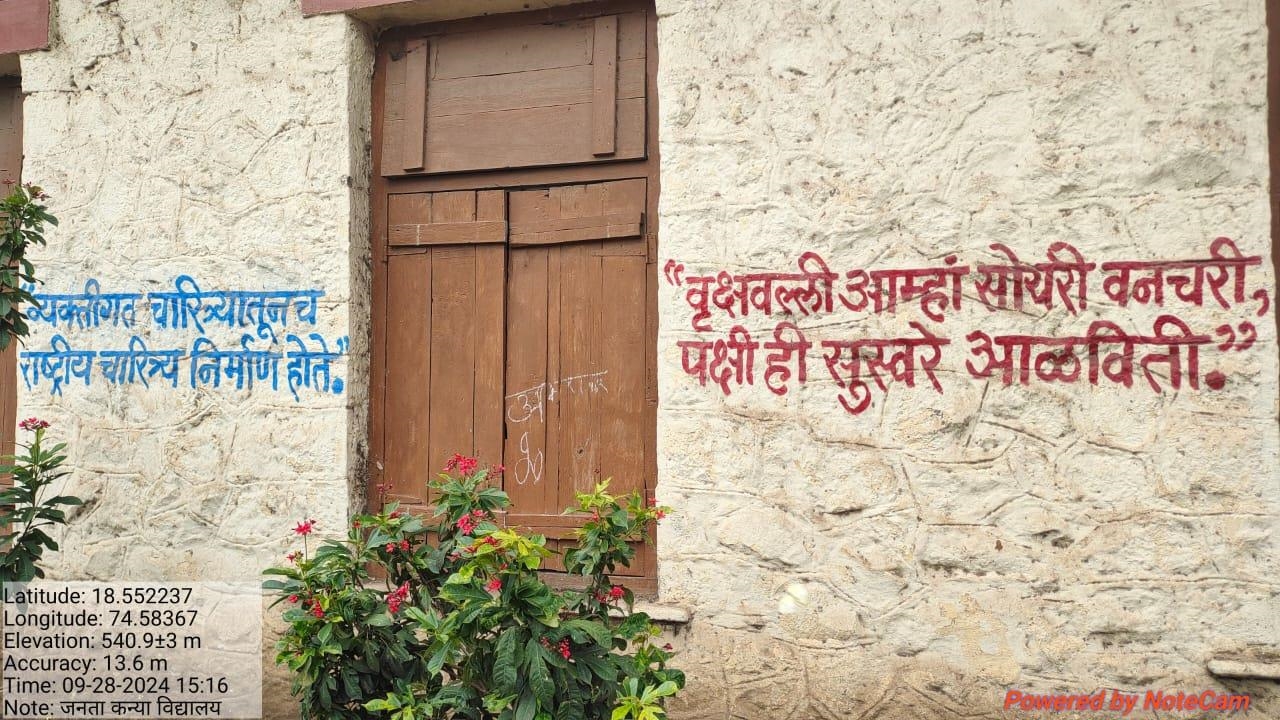 "व्यक्तीगत चारित्र्यातूनच
राष्ट्रीय चारित्र्य निर्माण होते."
"वृक्षवल्ली आम्हां सोयरी वनचरी,
पक्षी ही सुस्वरे आळविती."
Latitude: 18.552237
Longitude: 74.58367
Elevation: 540.9±3 m
Accuracy: 13.6 m
Time: 09-28-2024 15:16
Note: जनता कन्या विद्यालय
Powered by NoteCam